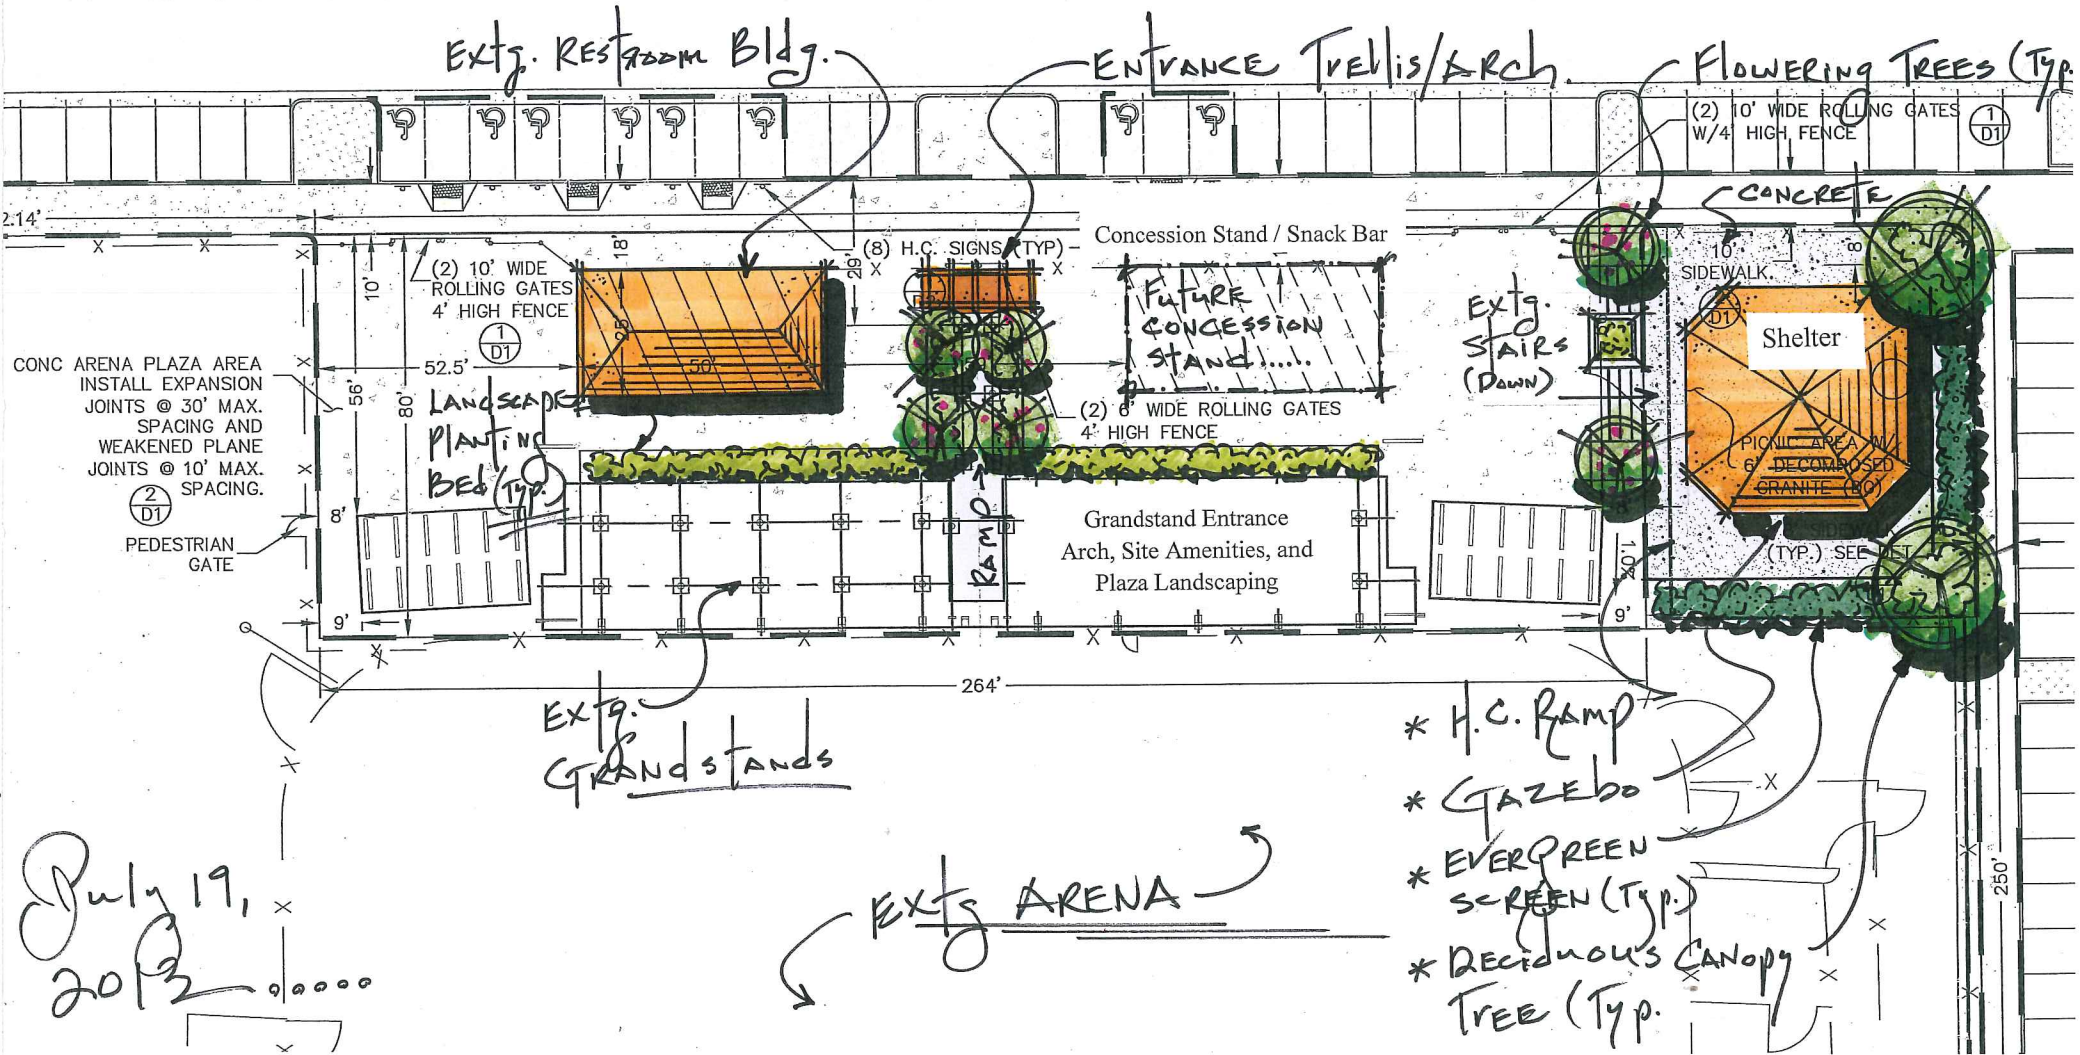 Extg. Restroom Bldg.
Entrance Trellis/Arch.
Flowering Trees (Typ.
(2) 10' WIDE ROLLING GATES
W/4' HIGH FENCE
1
D1
CONCRETE
2.14'
10'
18'
29'
(8) H.C. SIGNS (TYP)
Concession Stand / Snack Bar
10'
SIDEWALK.
8'
(2) 10' WIDE
ROLLING GATES
4' HIGH FENCE
1
D1
Future
Concession
Stand......
Extg.
Stairs
(Down)
D1
Shelter
CONC ARENA PLAZA AREA
INSTALL EXPANSION
JOINTS @ 30' MAX.
SPACING AND
WEAKENED PLANE
JOINTS @ 10' MAX.
SPACING.
2
D1
52.5'
56'
80'
25'
50'
Landscape
Planting
Bed (Typ.)
(2) 6' WIDE ROLLING GATES
4' HIGH FENCE
PICNIC AREA W/
6" DECOMPOSED
GRANITE (DG)
8'
PEDESTRIAN
GATE
Ramp
Grandstand Entrance
Arch, Site Amenities, and
Plaza Landscaping
SIDEWALK
(TYP.) SEE DET
1.0%
9'
9'
264'
Extg.
Grandstands
* H.C. Ramp
* Gazebo
* Evergreen
Screen (Typ.)
* Deciduous Canopy
Tree (Typ.
Extg Arena
250'
July 19,
2013.....